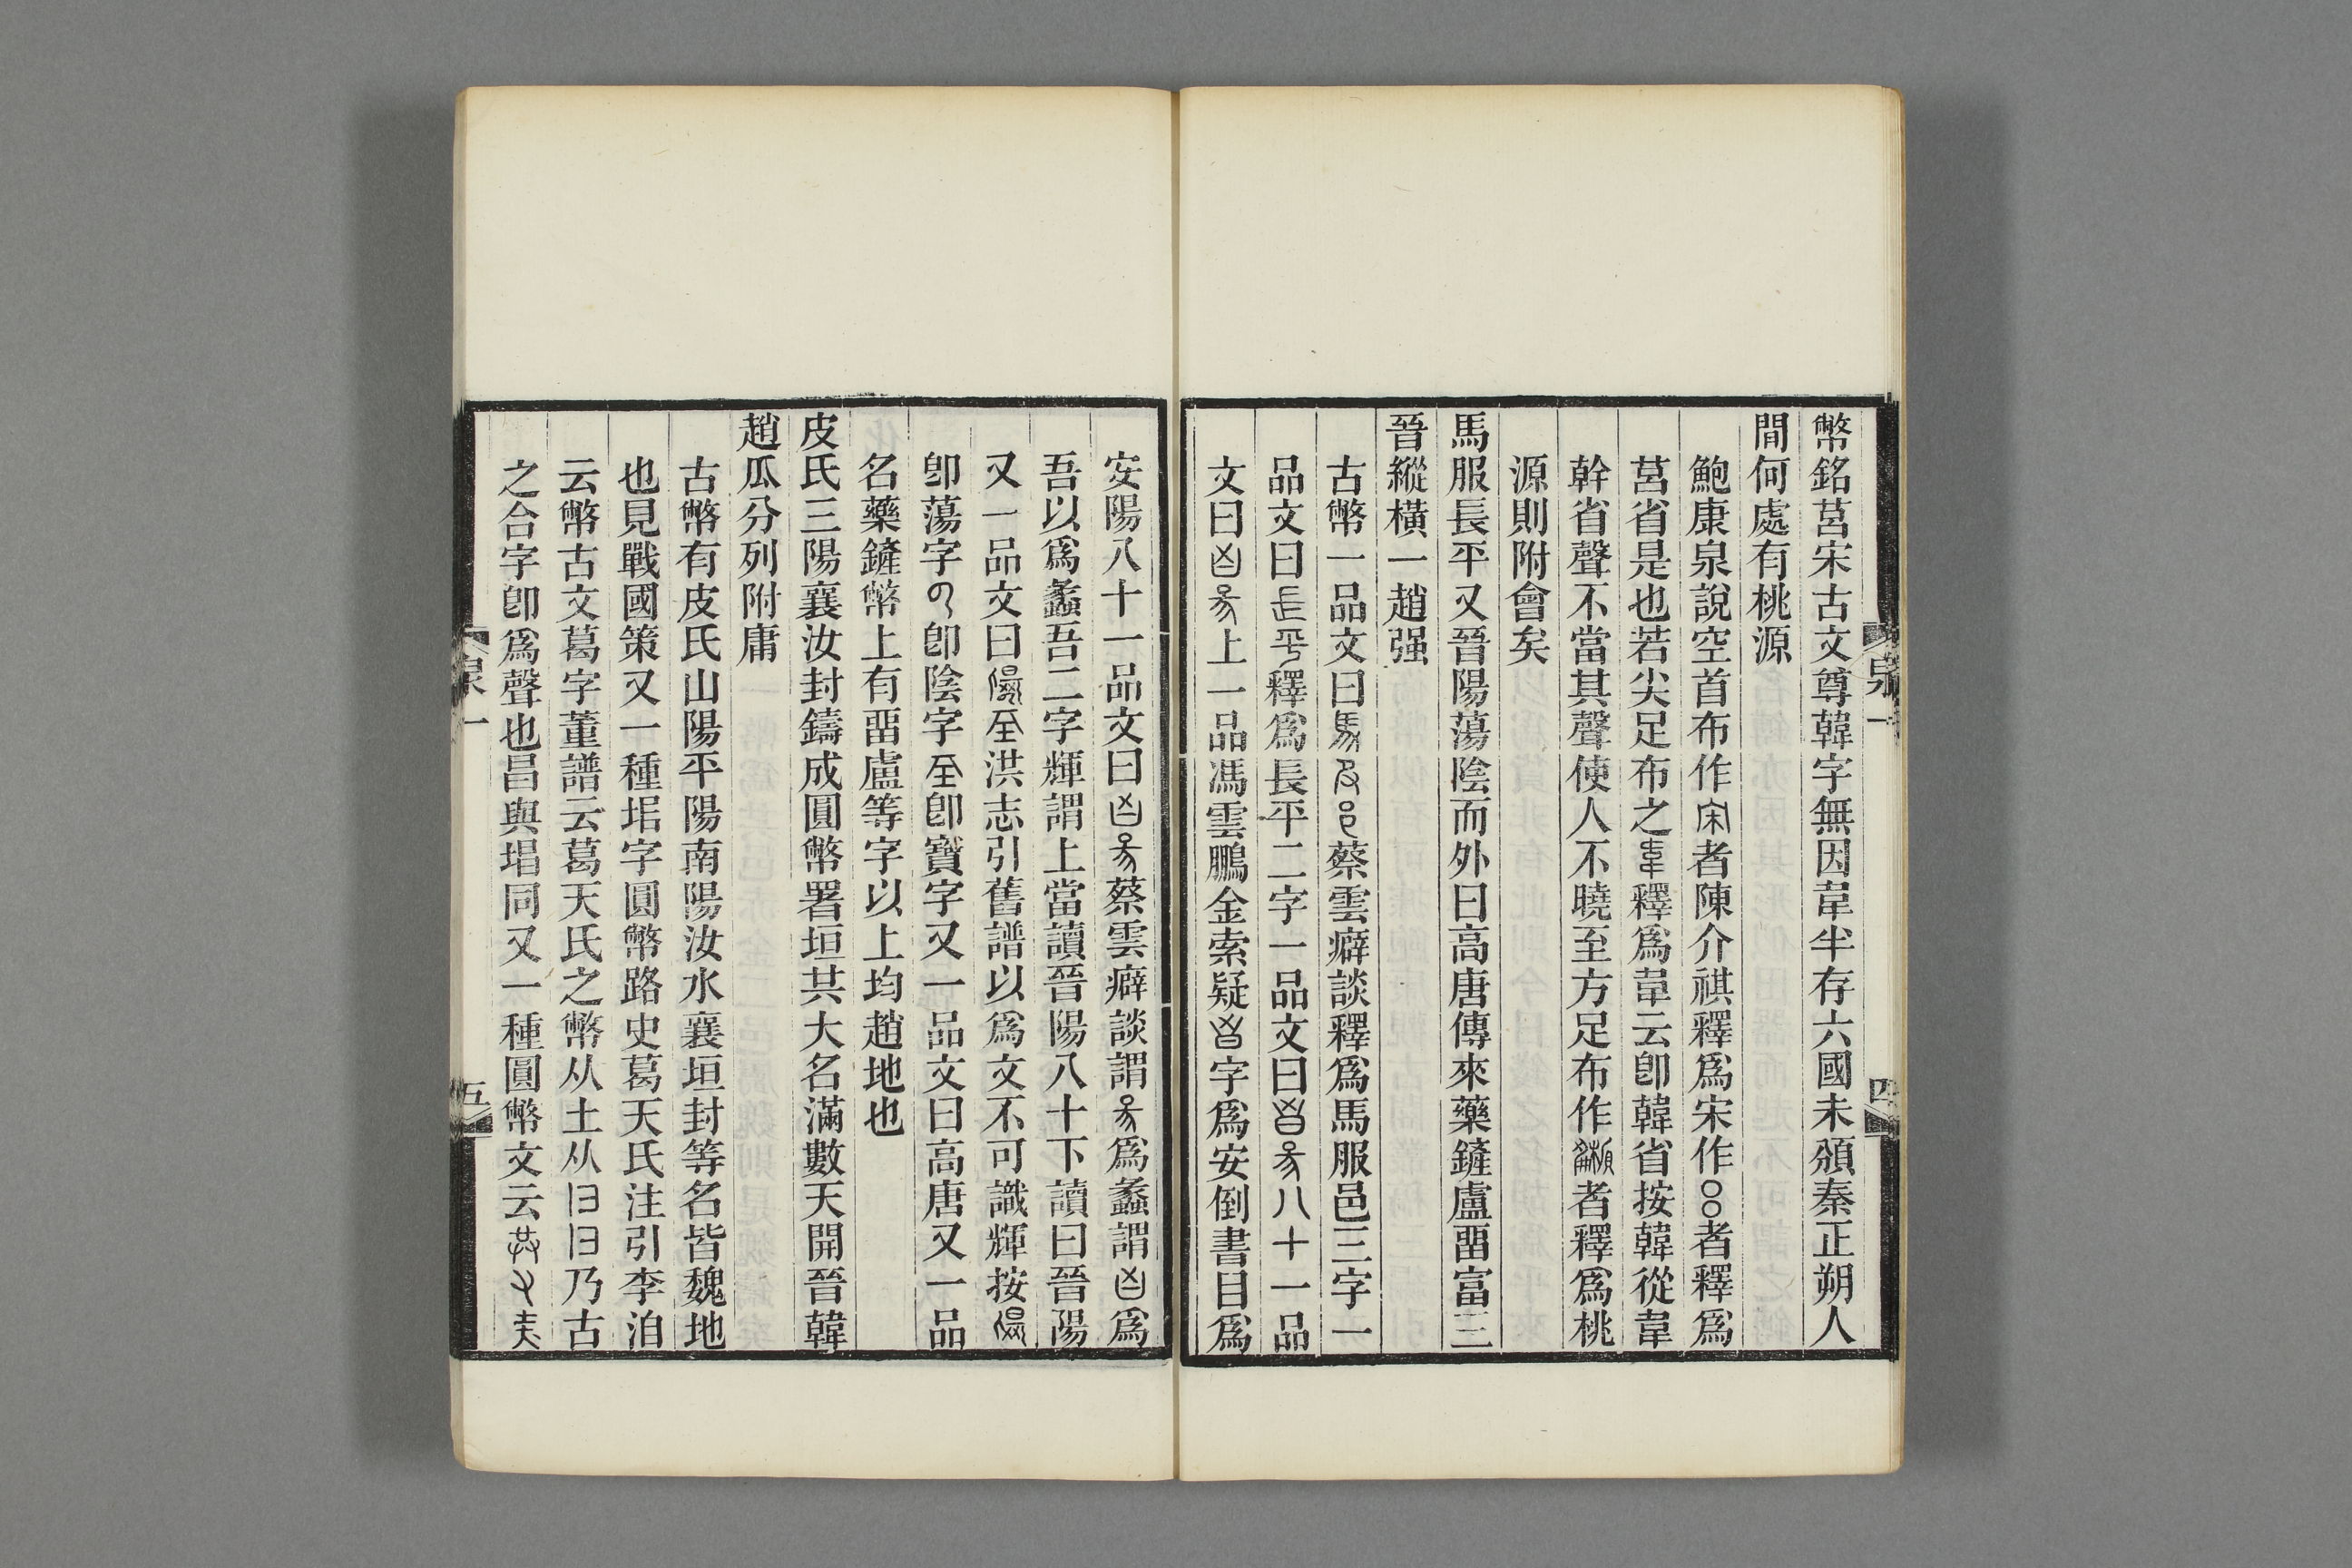 幣銘莒宋古文尊韓字無因韋半存六國未頒秦正朔人
間何處有桃源
鮑康泉說空首布作者陳介祺釋爲宋作○○者釋爲
莒省是也若尖足布之釋爲韋云卽韓省按韓從韋
幹省聲不當其聲使人不曉至方足布作者釋爲桃
源則附會矣
馬服長平又晉陽蕩陰而外曰高唐傳來藥鏟盧畱富三
晉縱橫一趙强
古幣一品文曰蔡雲癖談釋爲馬服邑三字一
品文曰釋爲長平二字一品文曰八十一品
文曰上一品馮雲鵬金索疑字爲安倒書目爲
安陽八十一品文曰蔡雲癖談謂爲蠡謂爲
吾以爲蠡吾二字輝謂上當讀晉陽八十下讀曰晉陽
又一品文曰洪志引舊譜以爲文不可識輝按
卽蕩字卽陰字卽寶字又一品文曰高唐又一品
名藥鏟幣上有畱盧等字以上均趙地也
皮氏三陽襄汝封鑄成圓幣署垣共大名滿數天開晉韓
趙瓜分列附庸
古幣有皮氏山陽平陽南陽汝水襄垣封等名皆魏地
也見戰國策又一種垖字圓幣路史葛天氏注引李洎
云幣古文葛字董譜云葛天氏之幣从土从乃古
之合字卽爲聲也昌與塯同又一種圓幣文云
泉一
四
泉一
五